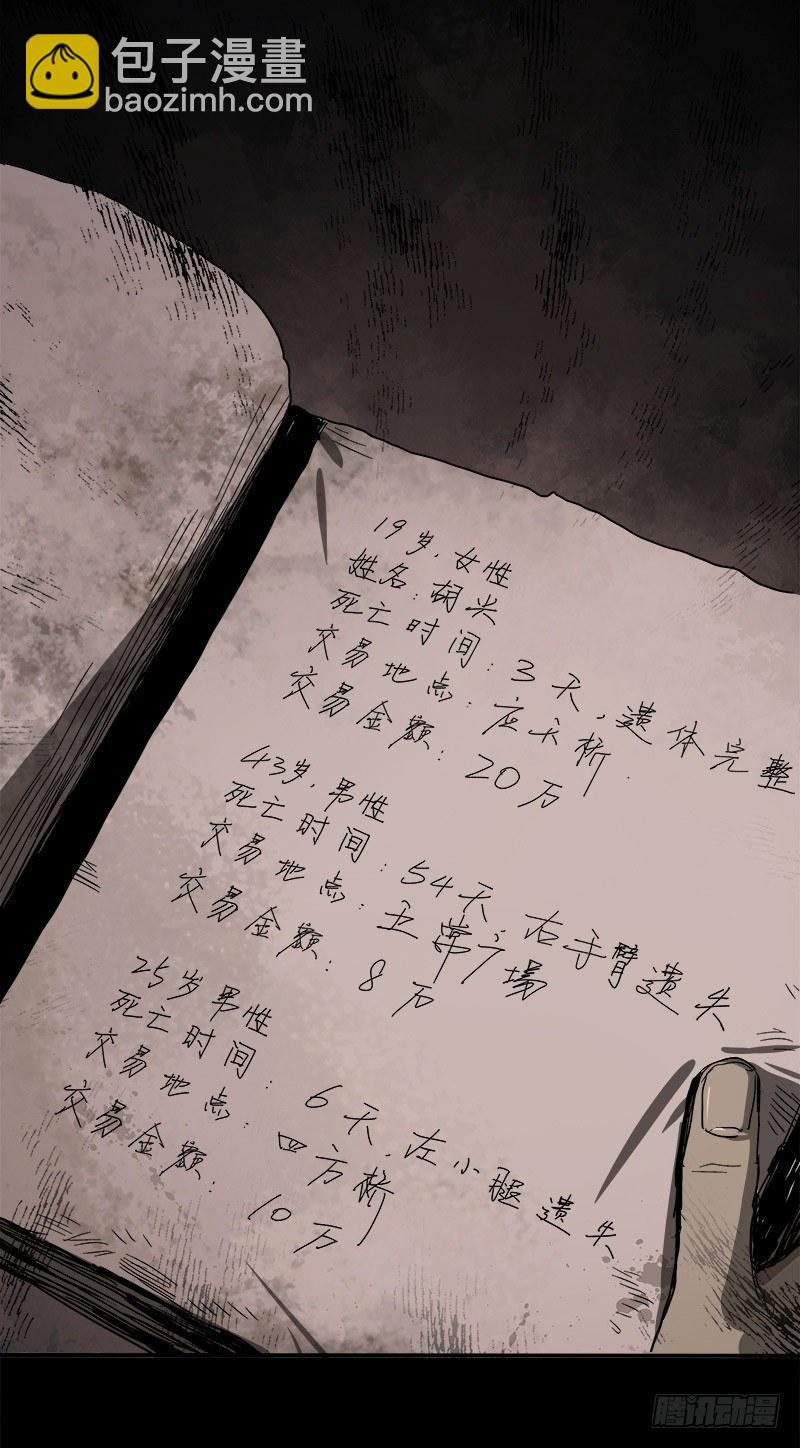 包子漫畫
baozimh.com
19岁,女性
姓名:胡兴
死亡时间:3天,遗体完整
交易地点:应天桥.
交易金额:20万
43岁,男性
死亡时间:54天,右手臂遗失
交易地点:主常广場
交易金额:8万
25岁男性
死亡时间:6天,左小腿遗失
交易地点:四方桥
交易金额:10万
腾讯动漫